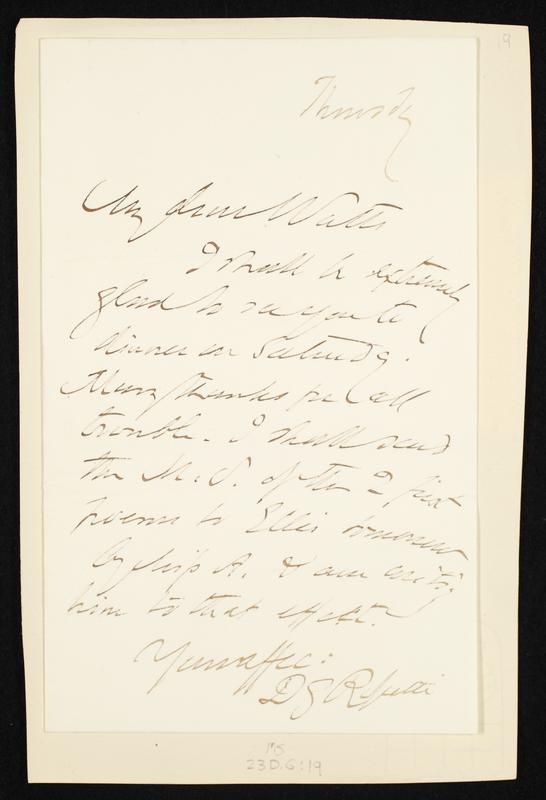 19
Thursday
My dear Watts
I shall be extremely
glad to see you to
dinner on Saturday.
Many thanks for all
trouble. I shall send
the M.S. of the 2 first
poems to Ellis tomorrow
by & am writing
him to that effect.
Your affec:
D G Rossetti
MS
23D.6:19